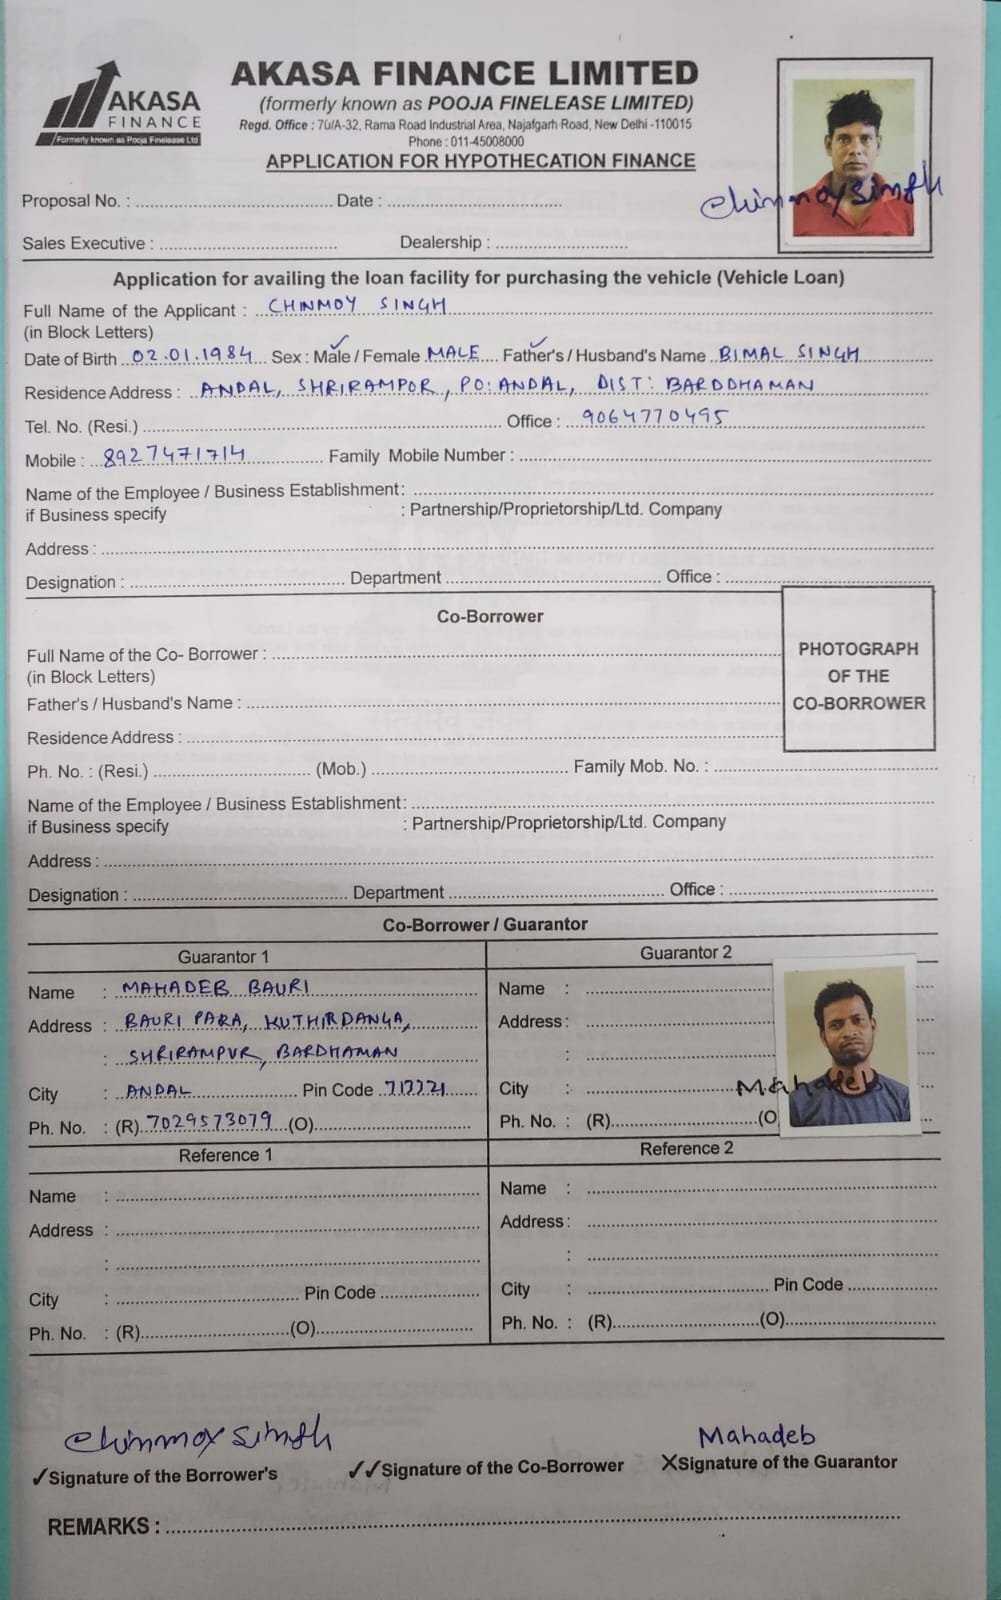 AKASA
FINANCE
Formerly known as Pooja Finelease Ltd
AKASA FINANCE LIMITED
(formerly known as POOJA FINELEASE LIMITED)
Regd. Office : 70/A-32, Rama Road Industrial Area, Najafgarh Road, New Delhi -110015
Phone : 011-45008000
APPLICATION FOR HYPOTHECATION FINANCE
Chinmoy Singh
Proposal No. : Date :
Sales Executive : Dealership :
Application for availing the loan facility for purchasing the vehicle (Vehicle Loan)
Full Name of the Applicant : CHINMOY SINGH
(in Block Letters)
Date of Birth 02.01.1984 Sex : Male / Female MALE Father's / Husband's Name BIMAL SINGH
Residence Address : ANDAL, SHRIRAMPOR, PO: ANDAL, DIST: BARDDHAMAN
Tel. No. (Resi.) Office : 9064770495
Mobile : 8927471714 Family Mobile Number :
Name of the Employee / Business Establishment:
if Business specify : Partnership/Proprietorship/Ltd. Company
Address :
Designation : Department Office :
Co-Borrower
PHOTOGRAPH
OF THE
CO-BORROWER
Full Name of the Co- Borrower :
(in Block Letters)
Father's / Husband's Name :
Residence Address :
Ph. No. : (Resi.) (Mob.) Family Mob. No. :
Name of the Employee / Business Establishment:
if Business specify : Partnership/Proprietorship/Ltd. Company
Address :
Designation : Department Office :
Co-Borrower / Guarantor
Guarantor 1
Name : MAHADEB BAURI
Address : BAURI PARA, KUTHIRDANGA,
: SHRIRAMPUR, BARDHAMAN
City : ANDAL Pin Code
Ph. No. : (R) 7029573079 (O)
Guarantor 2
Name :
Address :
:
City : Mahadeb
Ph. No. : (R) (O
Reference 1
Name :
Address :
:
City : Pin Code
Ph. No. : (R) (O)
Reference 2
Name :
Address :
:
City : Pin Code
Ph. No. : (R) (O)
Chinmoy Singh
✓Signature of the Borrower's
✓✓Signature of the Co-Borrower
Mahadeb
XSignature of the Guarantor
REMARKS :